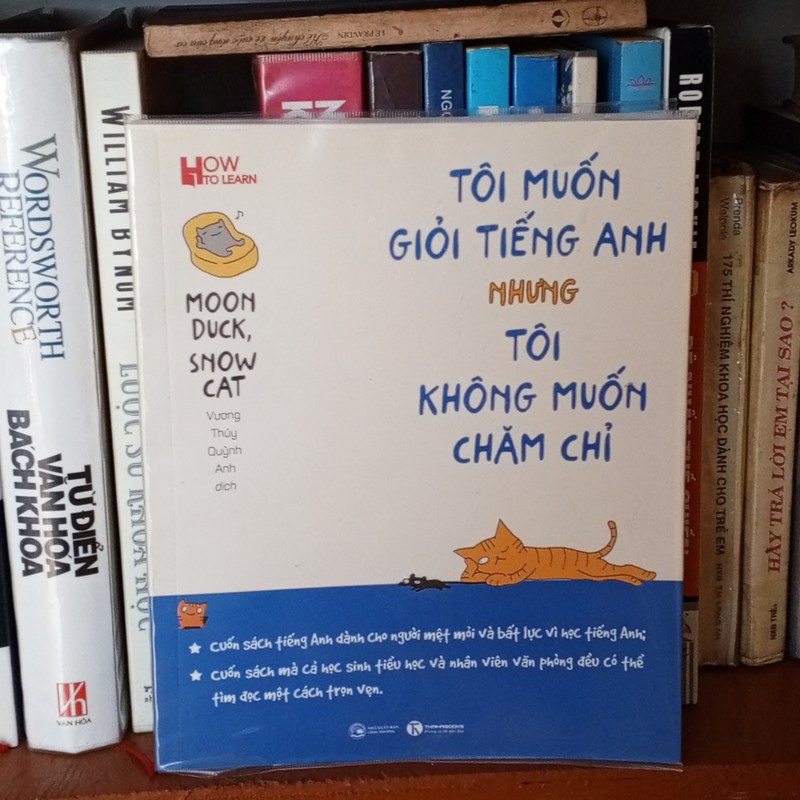 LEPRAVDIN
HOW
TO LEARN
MOON
DUCK,
SNOW
CAT
Vương
Thúy
Quỳnh
Anh
dịch
TÔI MUỐN
GIỎI TIẾNG ANH
NHƯNG
TÔI
KHÔNG MUỐN
CHĂM CHỈ
cuốn sách tiếng Anh dành cho người mệt mỏi và bất lực vì học tiếng Anh;
cuốn sách mà cả học sinh tiểu học và nhân viên văn phòng đều có thể
tìm đọc một cách trọn vẹn.
THAIHABOOKS
WORDSWORTH
REFERENCE
TỪ ĐIỂN
VĂN HÓA
BÁCH KHOA
VĂN HÓA
WILLIAM BYNUM
LƯỢC SỬ KHOA HỌC
NGÔ
Brenda
Walpole
175 THÍ NGHIỆM KHOA HỌC DÀNH CHO TRẺ EM
ARKADY LEOKUM
HÃY TRẢ LỜI EM TẠI SAO ?
NXB TRẺ